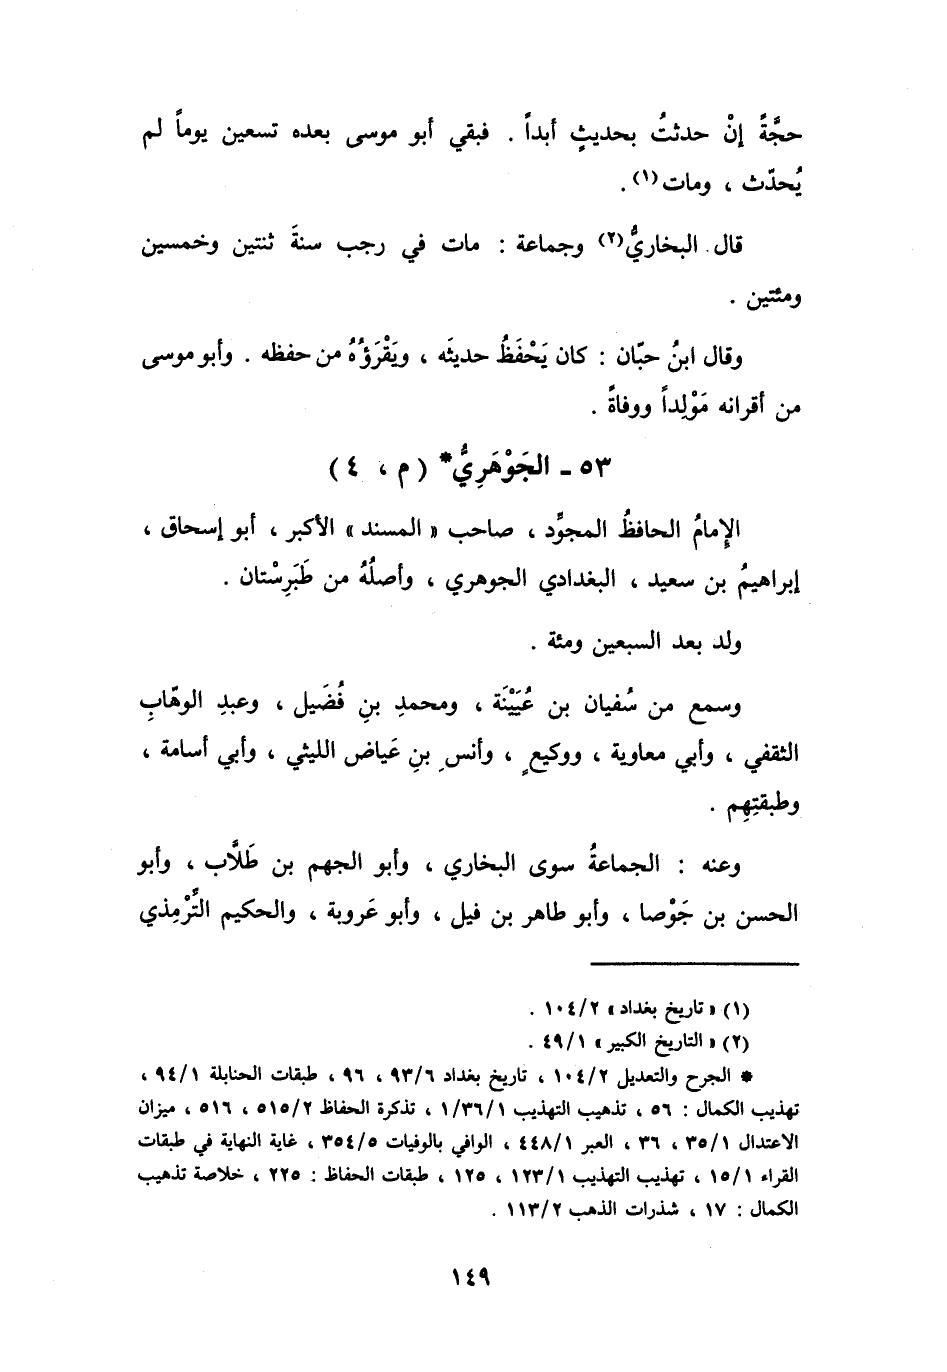 حجَّةً إنْ حدثتُ بحديثٍ أبداً . فبقي أبو موسى بعده تسعين يوماً لم
يُحدّث ، ومات(١) .
قال البخاريُّ(٢) وجماعة : مات في رجب سنةَ ثنتين وخمسين
ومئتين .
وقال ابنُ حبّان : كان يَحْفَظُ حديثَه ، ويَقْرَؤُهُ من حفظه . وأبو موسى
من أقرانه مَوْلِداً ووفاةً .
٥٣ ـ الجَوْهَرِيُّ* ( م ، ٤ )
الإِمامُ الحافظُ المجوِّد ، صاحب « المسند » الأكبر ، أبو إسحاق ،
إبراهيمُ بن سعيد ، البغدادي الجوهري ، وأصلُهُ من طَبَرِسْتان .
ولد بعد السبعين ومئة .
وسمع من سُفيان بن عُيَيْنَة ، ومحمدِ بنِ فُضَيل ، وعبدِ الوهّابِ
الثقفي ، وأبي معاوية ، ووكيعٍ ، وأنسِ بنِ عَياض الليثي ، وأبي أسامة ،
وطبقتِهِم .
وعنه : الجماعةُ سوى البخاري ، وأبو الجهم بن طَلَّاب ، وأبو
الحسن بن جَوْصا ، وأبو طاهر بن فيل ، وأبو عَروبة ، والحكيم التِّرْمِذي
(١) « تاريخ بغداد » ١٠٤/٢ .
(٢) « التاريخ الكبير » ٤٩/١ .
* الجرح والتعديل ١٠٤/٢ ، تاريخ بغداد ٩٣/٦ ، ٩٦ ، طبقات الحنابلة ٩٤/١ ،
تهذيب الكمال : ٥٦ ، تذهيب التهذيب ١/٣٦/١ ، تذكرة الحفاظ ٥١٥/٢ ، ٥١٦ ، ميزان
الاعتدال ٣٥/١ ، ٣٦ ، العبر ٤٤٨/١ ، الوافي بالوفيات ٣٥٤/٥ ، غاية النهاية في طبقات
القراء ١٥/١ ، تهذيب التهذيب ١٢٣/١ ، ١٢٥ ، طبقات الحفاظ : ٢٢٥ ، خلاصة تذهيب
الكمال : ١٧ ، شذرات الذهب ١١٣/٢ .
١٤٩